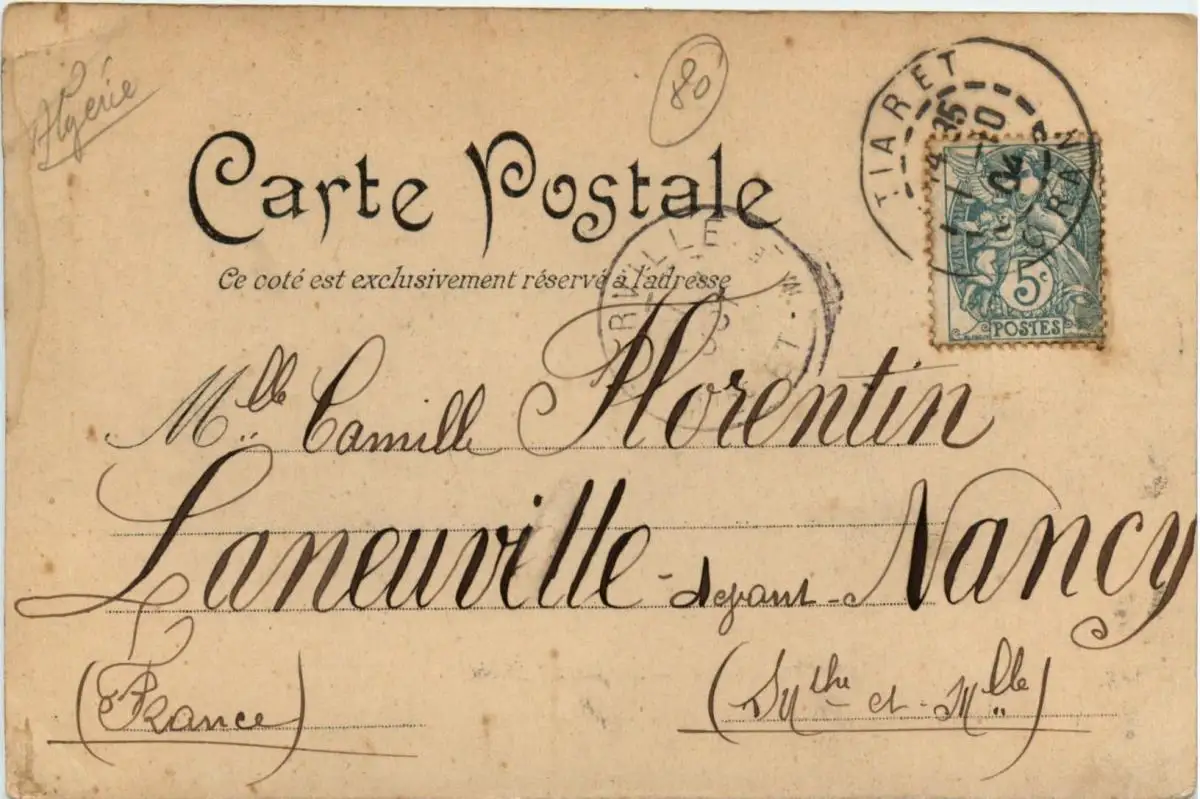 Algérie
80
TIARET
ORAN
Carte Postale
Ce coté est exclusivement réservé à l'adresse
5c
POSTES
Mlle Camille Florentin
Laneuville - devant - Nancy
(France)
(Mthe et Mlle)